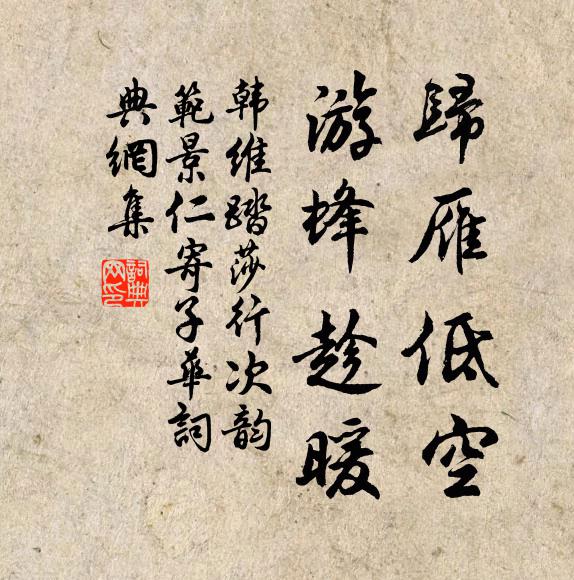 歸雁低空
游蜂趁暖
韩維踏莎行次韵
範景仁寄子華詞
典網集
詞典
网印